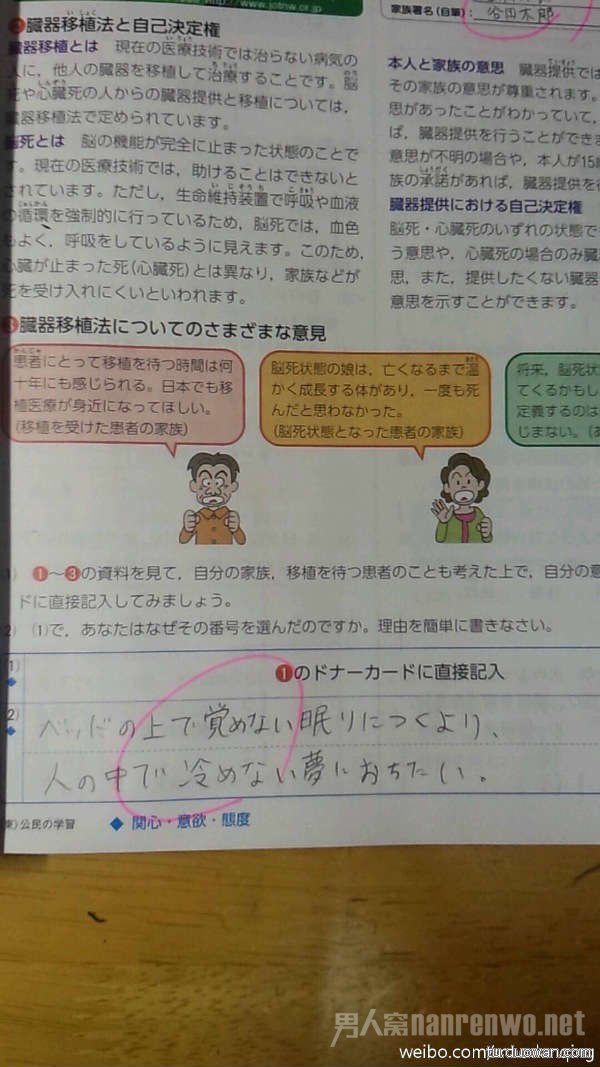 www.jotnw.or.jp
家族署名(自筆): 谷田太郎
❷臓器移植法と自己決定権
臓器移植とは 現在の医療技術では治らない病気の
人に，他人の臓器を移植して治療することです。脳
死や心臓死の人からの臓器提供と移植については，
臓器移植法で定められています。
脳死とは 脳の機能が完全に止まった状態のことで
す。現在の医療技術では，助けることはできないと
されています。ただし，生命維持装置で呼吸や血液
の循環を強制的に行っているため，脳死では，血色
もよく，呼吸をしているように見えます。このため，
心臓が止まった死(心臓死)とは異なり，家族などが
死を受け入れにくいといわれます。
本人と家族の意思 臓器提供では
その家族の意思が尊重されます。
思があったことがわかっていて，
ば，臓器提供を行うことができま
意思が不明の場合や，本人が15歳
族の承諾があれば，臓器提供を行
臓器提供における自己決定権
脳死・心臓死のいずれの状態で
う意思や，心臓死の場合のみ臓
思，また，提供したくない臓器
意思を示すことができます。
❸臓器移植法についてのさまざまな意見
患者にとって移植を待つ時間は何
十年にも感じられる。日本でも移
植医療が身近になってほしい。
(移植を受けた患者の家族)
脳死状態の娘は，亡くなるまで温
かく成長する体があり，一度も死
んだと思わなかった。
(脳死状態となった患者の家族)
将来，脳死状
てくるかもし
定義するのは
じまない。(あ
(1) ❶〜❸の資料を見て，自分の家族，移植を待つ患者のことも考えた上で，自分の意
ドに直接記入してみましょう。
(2) (1)で，あなたはなぜその番号を選んだのですか。理由を簡単に書きなさい。
(1) ❶のドナーカードに直接記入
(2) ベッドの上で覚めない眠りにつくより、
人の中で冷めない夢におちたい。
東)公民の学習 ◆ 関心・意欲・態度
男人窝nanrenwo.net
weibo.com/